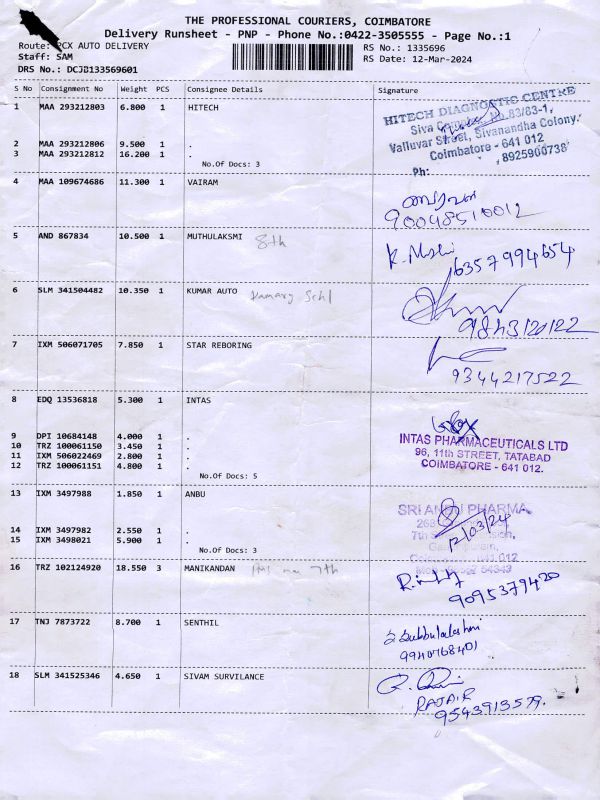 THE PROFESSIONAL COURIERS, COIMBATORE
Delivery Runsheet - PNP - Phone No.:0422-3505555 - Page No.:1
Route: PCX AUTO DELIVERY
RS No.: 1335696
Staff: SAM
RS Date: 12-Mar-2024
DRS No.: DCJB133569601
S No Consignment No Weight PCS Consignee Details Signature
1 MAA 293212803 6.800 1 HITECH
HITECH DIAGNOSTIC CENTRE
Siva No.83/83-1,
Valluvar Street, Sivanandha Colony,
Coimbatore - 641 012
Ph: 8925960738
2 MAA 293212806 9.500 1 .
3 MAA 293212812 16.200 1 .
No.Of Docs: 3
4 MAA 109674686 11.300 1 VAIRAM
5 AND 867834 10.500 1 MUTHULAKSMI 8th
63579 94654
6 SLM 341504482 10.350 1 KUMAR AUTO
9843120122
7 IXM 506071705 7.850 1 STAR REBORING
9344217522
8 EDQ 13536818 5.300 1 INTAS
INTAS PHARMACEUTICALS LTD
96, 11th STREET, TATABAD
COIMBATORE - 641 012.
9 DPI 10684148 4.000 1 .
10 TRZ 100061150 3.450 1 .
11 IXM 506022469 2.800 1 .
12 TRZ 100061151 4.800 1 .
No.Of Docs: 5
13 IXM 3497988 1.850 1 ANBU
SRI ANBU PHARMA
12/03/24
14 IXM 3497982 2.550 1 .
15 IXM 3498021 5.900 1 .
No.Of Docs: 3
16 TRZ 102124920 18.550 3 MANIKANDAN 7th
9095379420
17 TNJ 7873722 8.700 1 SENTHIL
S Subbulakshmi
9940768401
18 SLM 341525346 4.650 1 SIVAM SURVILANCE
RAJA.R
9543913579.